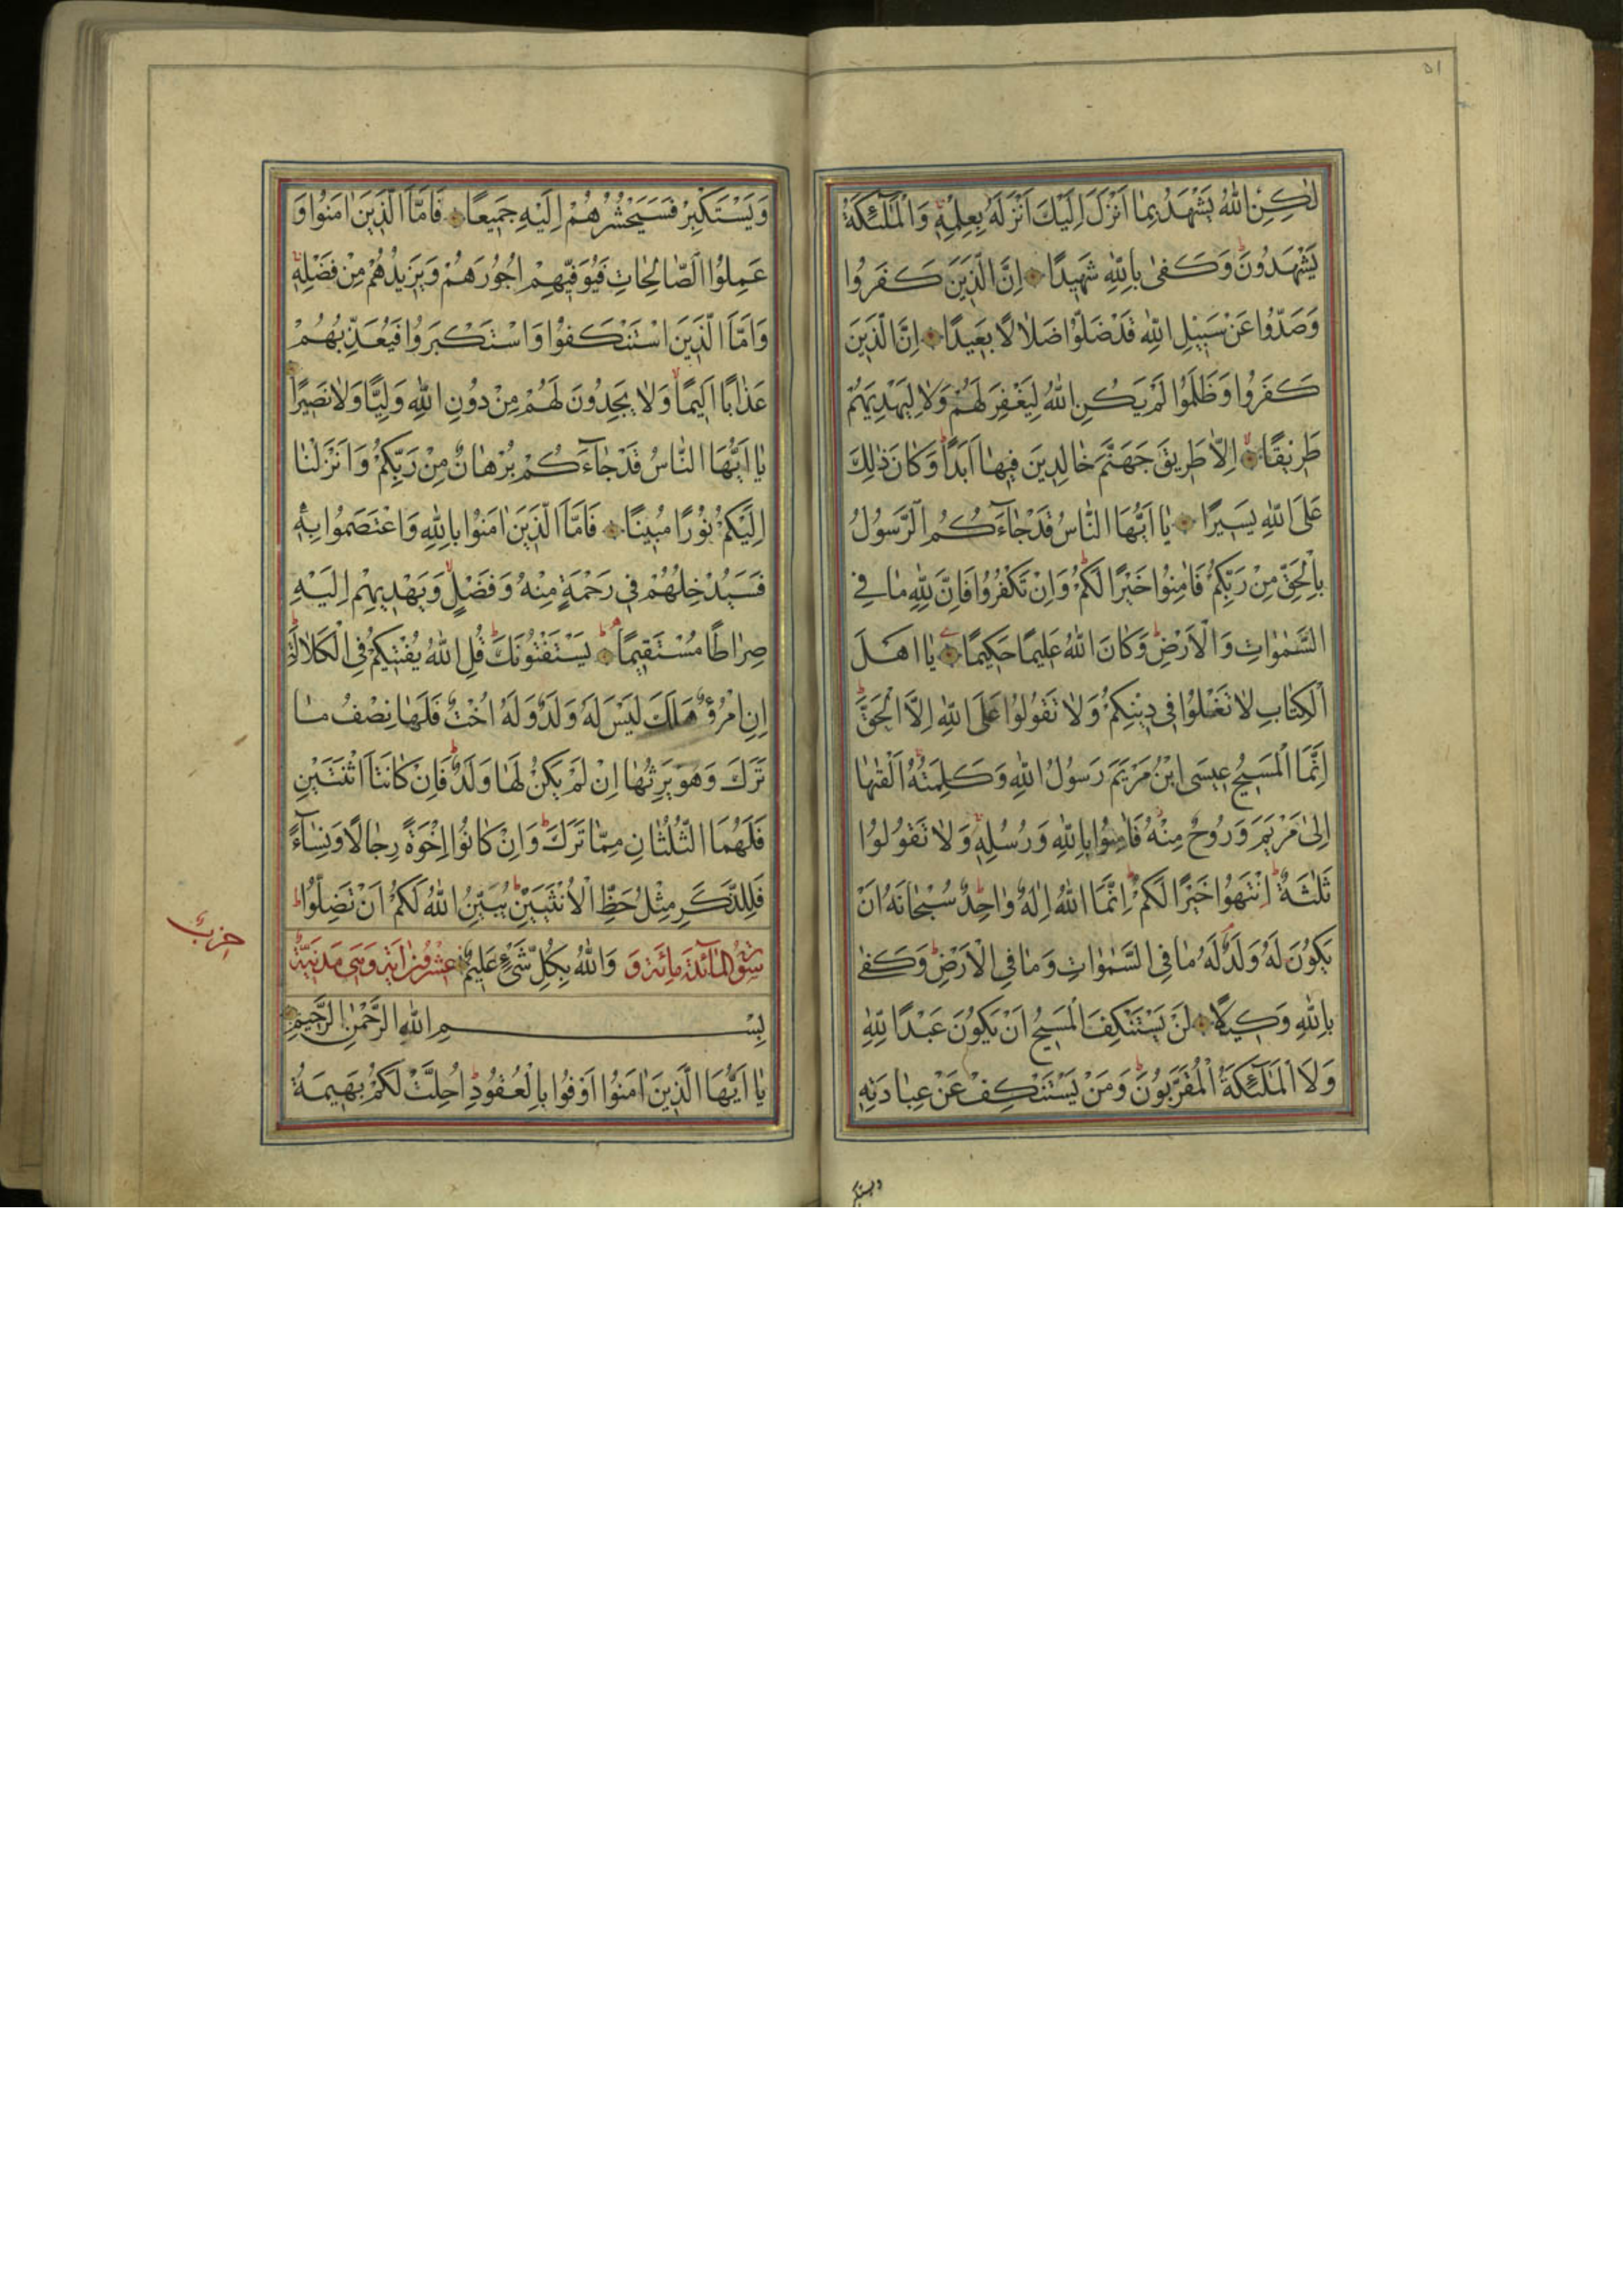 ٥١
لٰكِنِ اللّٰهُ يَشْهَدُ بِمٰا اَنْزَلَ اِلَيْكَ اَنْزَلَهُ بِعِلْمِهٖ وَالْمَلٰٓئِكَةُ
يَشْهَدُونَ وَكَفىٰ بِاللّٰهِ شَهٖيدًا اِنَّ الَّذٖينَ كَفَرُوا
وَصَدُّوا عَنْ سَبٖيلِ اللّٰهِ قَدْ ضَلُّوا ضَلٰالًا بَعٖيدًا اِنَّ الَّذٖينَ
كَفَرُوا وَظَلَمُوا لَمْ يَكُنِ اللّٰهُ لِيَغْفِرَ لَهُمْ وَلٰا لِيَهْدِيَهُمْ
طَرٖيقًا اِلّٰا طَرٖيقَ جَهَنَّمَ خٰالِدٖينَ فٖيهٰا اَبَدًا وَكٰانَ ذٰلِكَ
عَلَى اللّٰهِ يَسٖيرًا يٰا اَيُّهَا النّٰاسُ قَدْ جٰٓاءَكُمُ الرَّسُولُ
بِالْحَقِّ مِنْ رَبِّكُمْ فَاٰمِنُوا خَيْرًا لَكُمْ وَاِنْ تَكْفُرُوا فَاِنَّ لِلّٰهِ مٰا فِي
السَّمٰوٰاتِ وَالْاَرْضِ وَكٰانَ اللّٰهُ عَلٖيمًا حَكٖيمًا يٰا اَهْلَ
الْكِتٰابِ لٰا تَغْلُوا فٖي دٖينِكُمْ وَلٰا تَقُولُوا عَلَى اللّٰهِ اِلَّا الْحَقَّ
اِنَّمَا الْمَسٖيحُ عٖيسَى ابْنُ مَرْيَمَ رَسُولُ اللّٰهِ وَكَلِمَتُهُ اَلْقٰيهٰا
اِلىٰ مَرْيَمَ وَرُوحٌ مِنْهُ فَاٰمِنُوا بِاللّٰهِ وَرُسُلِهٖ وَلٰا تَقُولُوا
ثَلٰثَةٌ اِنْتَهُوا خَيْرًا لَكُمْ اِنَّمَا اللّٰهُ اِلٰهٌ وٰاحِدٌ سُبْحٰانَهُ اَنْ
يَكُونَ لَهُ وَلَدٌ لَهُ مٰا فِي السَّمٰوٰاتِ وَمٰا فِي الْاَرْضِ وَكَفىٰ
بِاللّٰهِ وَكٖيلًا لَنْ يَسْتَنْكِفَ الْمَسٖيحُ اَنْ يَكُونَ عَبْدًا لِلّٰهِ
وَلَا الْمَلٰٓئِكَةُ الْمُقَرَّبُونَ وَمَنْ يَسْتَنْكِفْ عَنْ عِبٰادَتِهٖ
ويستكبر
وَيَسْتَكْبِرْ فَسَيَحْشُرُهُمْ اِلَيْهِ جَمٖيعًا فَاَمَّا الَّذٖينَ اٰمَنُوا وَ
عَمِلُوا الصّٰالِحٰاتِ فَيُوَفّٖيهِمْ اُجُورَهُمْ وَيَزٖيدُهُمْ مِنْ فَضْلِهٖ
وَاَمَّا الَّذٖينَ اسْتَنْكَفُوا وَاسْتَكْبَرُوا فَيُعَذِّبُهُمْ
عَذٰابًا اَلٖيمًا وَلٰا يَجِدُونَ لَهُمْ مِنْ دُونِ اللّٰهِ وَلِيًّا وَلٰا نَصٖيرًا
يٰا اَيُّهَا النّٰاسُ قَدْ جٰٓاءَكُمْ بُرْهٰانٌ مِنْ رَبِّكُمْ وَاَنْزَلْنٰا
اِلَيْكُمْ نُورًا مُبٖينًا فَاَمَّا الَّذٖينَ اٰمَنُوا بِاللّٰهِ وَاعْتَصَمُوا بِهٖ
فَسَيُدْخِلُهُمْ فٖي رَحْمَةٍ مِنْهُ وَفَضْلٍ وَيَهْدٖيهِمْ اِلَيْهِ
صِرٰاطًا مُسْتَقٖيمًا يَسْتَفْتُونَكَ قُلِ اللّٰهُ يُفْتٖيكُمْ فِي الْكَلٰالَةِ
اِنِ امْرُؤٌ هَلَكَ لَيْسَ لَهُ وَلَدٌ وَلَهُ اُخْتٌ فَلَهٰا نِصْفُ مٰا
تَرَكَ وَهُوَ يَرِثُهٰا اِنْ لَمْ يَكُنْ لَهٰا وَلَدٌ فَاِنْ كٰانَتَا اثْنَتَيْنِ
فَلَهُمَا الثُّلُثٰانِ مِمّٰا تَرَكَ وَاِنْ كٰانُوا اِخْوَةً رِجٰالًا وَنِسٰٓاءً
فَلِلذَّكَرِ مِثْلُ حَظِّ الْاُنْثَيَيْنِ يُبَيِّنُ اللّٰهُ لَكُمْ اَنْ تَضِلُّوا
سُورَةُ الْمٰٓائِدَةِ مِائَةٌ وَ وَاللّٰهُ بِكُلِّ شَيْءٍ عَلٖيمٌ عِشْرُونَ اٰيَةً وَهِيَ مَدَنِيَّةٌ
حزب
بِسْمِ اللّٰهِ الرَّحْمٰنِ الرَّحٖيمِ
يٰا اَيُّهَا الَّذٖينَ اٰمَنُوا اَوْفُوا بِالْعُقُودِ اُحِلَّتْ لَكُمْ بَهٖيمَةُ